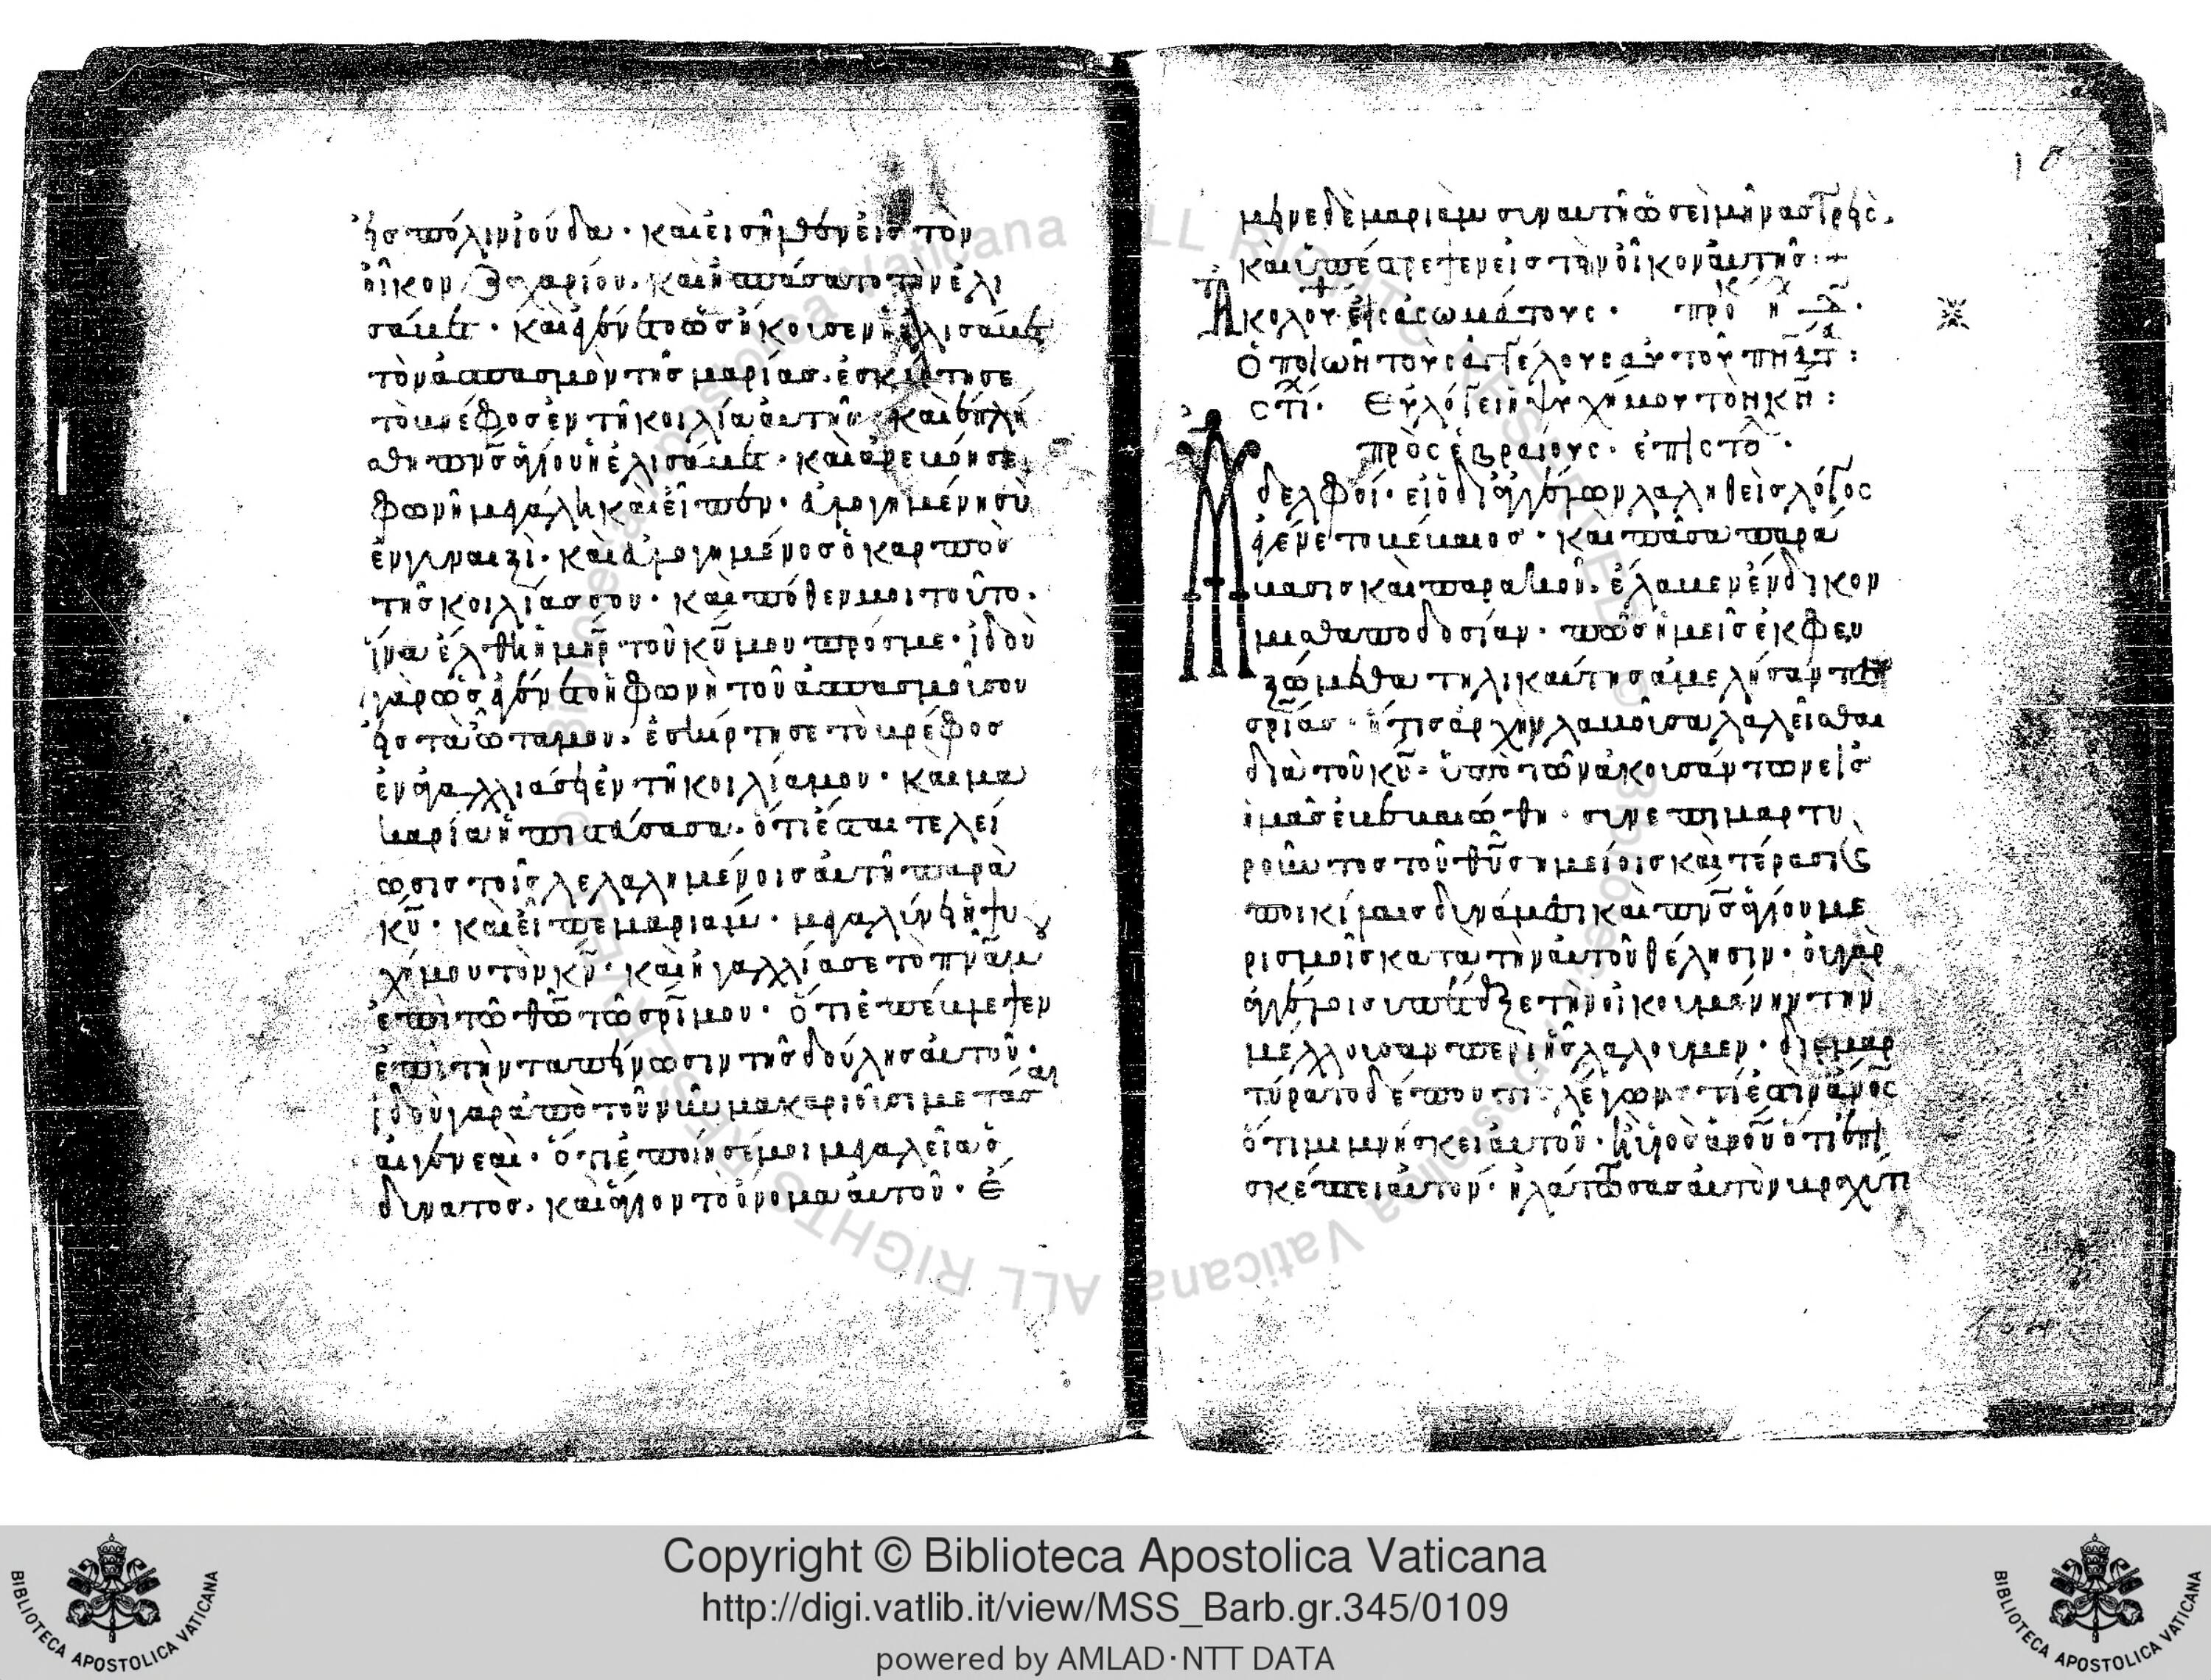 ἠς πόλιν ἰούδα· καὶ εἰσῆλθεν εἰς τὸν
οἶκον Ζαχαρίου· καὶ ἠσπάσατο τὴν ἐλι
σάβετ· καὶ ἐγένετο ὡς ἤκουσεν ἡ ἐλισάβετ
τὸν ἀσπασμὸν τῆς μαρίας· ἐσκίρτησε
τὸ βρέφος ἐν τῆ κοιλία αὐτῆς· καὶ ἐπλή
σθη πνς ἁγίου ἡ ἐλισάβετ· καὶ ἀνεβόησε
φωνῆ μεγάλη καὶ εἶπεν· εὐλογημένη σὺ
ἐν γυναιξὶ· καὶ εὐλογημένος ὁ καρπὸς
τῆς κοιλίας σου· καὶ πόθεν μοι τοῦτο·
ἵνα ἔλθη ἡ μηρ τοῦ κυ μου πρός με· ἰδοὺ
γὰρ ὡς ἐγένετο ἡ φωνὴ τοῦ ἀσπασμοῦ σου
εἰς τὰ ὦτα μου· ἐσκίρτησε τὸ βρέφος
ἐν ἀγαλλιάσει ἐν τῆ κοιλία μου· καὶ μα
καρία ἡ πιστεύσασα· ὅτι ἔσται τελεί
ωσις τοῖς λελαλημένοις αὐτῆ παρὰ
κυ· καὶ εἶπε μαριάμ· μεγαλύνει ἡ ψυ
χή μου τὸν κν· καὶ ἠγαλλίασε τὸ πνα μου
ἐπὶ τῶ θω τῶ σρι μου· ὅτι ἐπέβλεψεν
ἐπὶ τὴν ταπείνωσιν τῆς δούλης αὐτοῦ·
ἰδοὺ γὰρ ἀπὸ τοῦ νῦν μακαριοῦσι με πᾶσαι
αἱ γενεαὶ· ὅτι ἐποίησέ μοι μεγαλεῖα ὁ
δυνατὸς· καὶ ἅγιον τὸ ὄνομα αὐτοῦ· ἔ
μεινε δὲ μαριὰμ σὺν αὐτῆ ὡσεὶ μῆνας τρεῖς·
καὶ ὑπέστρεψεν εἰς τὸν οἶκον αὐτῆς:
Ἀκολου. εἰς ἀσωμάτους· προκ
Ὁ ποιῶν τοὺς ἀγγέλους αὐτοῦ πνατ:
στι· Εὐλόγει ἡ ψυχή μου τὸν κν:
πρὸς ἑβραίους· ἐπιστο·
Ἀδελφοί· εἰ ὁ δι' ἀγγέλων λαληθεὶς λόγος
ἐγένετο βέβαιος· καὶ πᾶσα παρά
βασις καὶ παρακοὴ· ἔλαβεν ἔνδικον
μισθαποδοσίαν· πῶς ἡμεῖς ἐκφευ
ξώμεθα τηλικαύτης ἀμελήσαντες
σρίας· ἥτις ἀρχὴν λαβοῦσα λαλεῖσθαι
διὰ τοῦ κυ· ὑπὸ τῶν ἀκουσάντων εἰς
ἡμᾶς ἐβεβαιώθη· συνεπιμαρτυ
ροῦντος τοῦ θυ σημείοις καὶ τέρασι
ποικίλαις δυνάμεσι καὶ πνς ἁγίου με
ρισμοῖς κατὰ τὴν αὐτοῦ θέλησιν· οὐ γὰρ
ἀγγέλοις ὑπέταξε τὴν οἰκουμένην τὴν
μέλλουσαν περὶ ἧς λαλοῦμεν· διεμαρ
τύρατο δέ που τις λέγων· τί ἐστιν ἀνος
ὅτι μιμνήσκει αὐτοῦ· ἢ υἱὸς ἀνου ὅτι ἐπι
σκέπτει αὐτόν· ἠλάττωσας αὐτὸν βραχύ τι
Copyright © Biblioteca Apostolica Vaticana
http://digi.vatlib.it/view/MSS_Barb.gr.345/0109
powered by AMLAD·NTT DATA
BIBLIOTECA APOSTOLICA VATICANA
BIBLIOTECA APOSTOLICA VATICANA